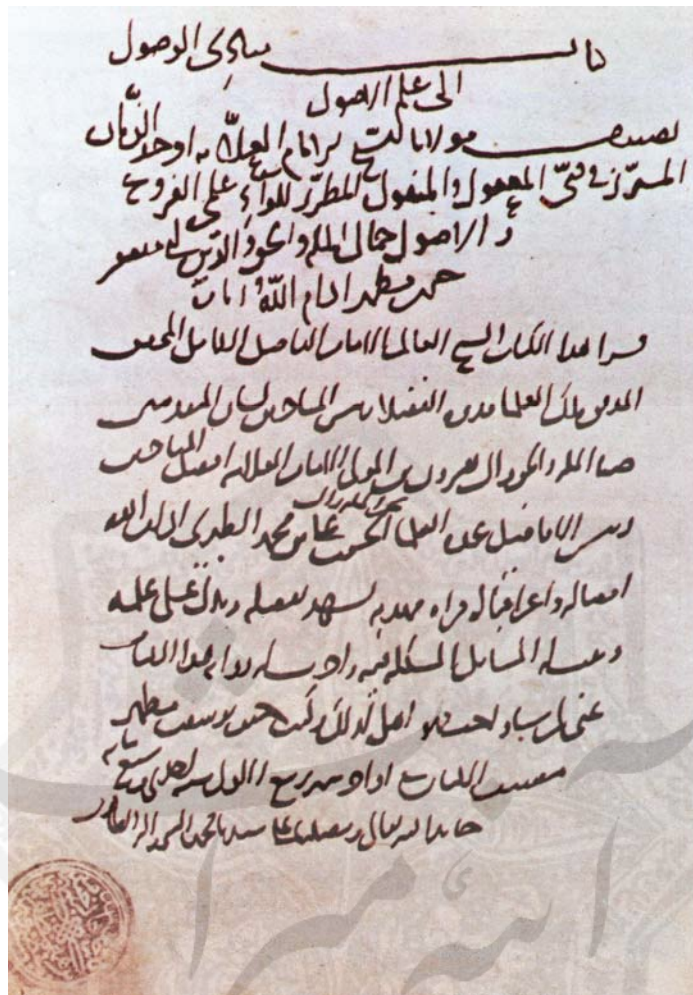 كتاب مبادئ الوصول
الى علم الاصول
تصنيف مولانا الشيخ الامام العلامه اوحد الزمان
المبرز في فني المعقول والمنقول المطرز للواء علمي الفروع
و الاصول جمال المله والحق والدين ابي منصور
حسن مطهر ادام الله ايامه
قرا هذا الكتاب الشيخ العالم الامام الفاضل الكامل المحقق
المدقق ملك العلما قدوه الفضلا رئيس المباحثين لسان المتقدمين
المله والحق والدين بن المولى الامام العلامه افضل المباحثين
رئيس الافاضل علي بن محمد الطبري ادام الله
افضاله واعز اقباله قراه مهذبه تشهد بفضله وتدل على علمه
المسائل المشكله فيه واجزت له روايه هذا الكتاب
عني لمن شاء واحب فهو اهل لذلك وكتب حسن بن يوسف بن مطهر
مصنف الكتاب في اواخر شهر ربيع الاول سنه احدى وسبعمايه
حامدا لله تعالى ومصليا على سيدنا محمد النبي واله الطاهرين